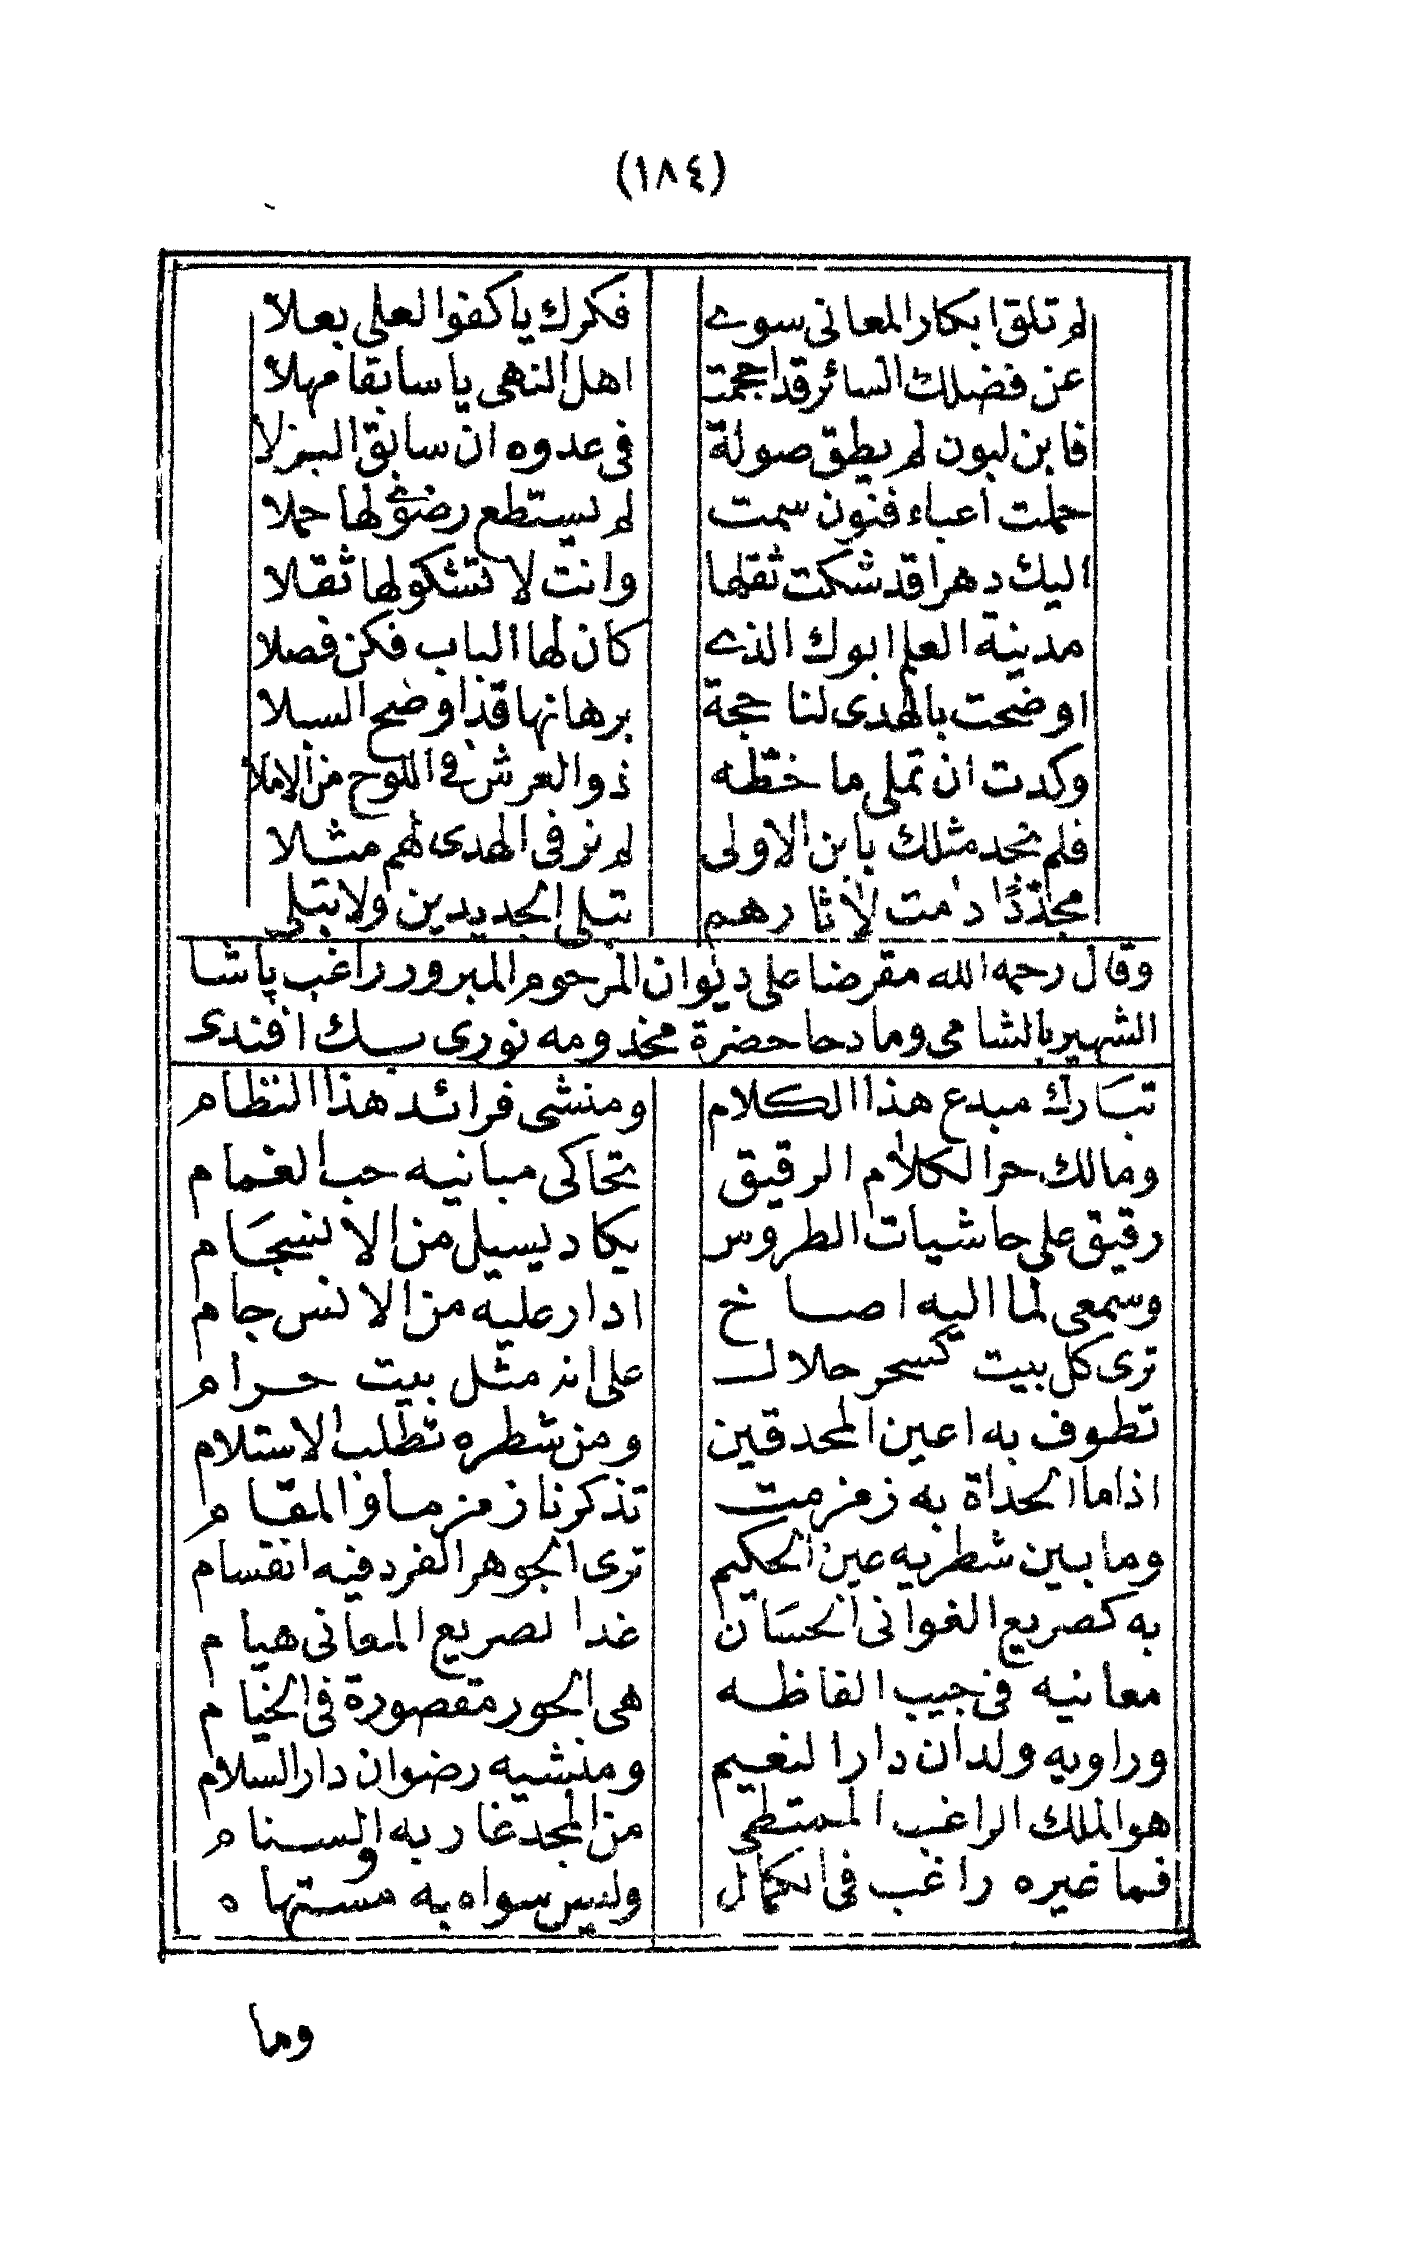 (١٨٤)
لم تلق ابكار المعانى سوى فكرك يا كفوا لعلى بعلا
عن فضلك السائر قد احجمت اهل النهى يا سابقا مهلا
فابن لبون لم يطق صولة فى عدوه ان سابق البزلا
حملت أعباء فنون سمت لم يستطع رضوى لها حملا
اليك دهرا قد شكت ثقلها وانت لا تشكو لها ثقلا
مدينة العلم ابوك الذى كان لها الباب فكن فصلا
اوضحت بالهدى لنا حجة برهانها قد اوضح السبلا
وكدت ان تملى ما خطه ذو العرش فى اللوح من الاملا
فلم نجد مثلك يا بن الاولى لم نر فى الهدى لهم مثلا
مجددًا دمت لآثارهم تبلى الجديدين ولا تبلى
وقال رحمه الله مقرضا على ديوان المرحوم المبرور راغب پاشا
الشهير بالشامى ومادحا حضرة مخدومه نورى بك افندى
تبارك مبدع هذا الكلام ومنشى فرائد هذا النظام
ومالك حر الكلام الرقيق تحاكى مبانيه حب الغمام
رقيق على حاشيات الطروس يكاد يسيل من الانسجام
وسمعى لما اليه اصاخ ادار عليه من الانس جام
ترى كل بيت كسحر حلال على انه مثل بيت حرام
تطوف به اعين المحدقين ومن شطره تطلب الاستلام
اذا ما الحداة به زمزمت تذكرنا زمزما والمقام
وما بين شطريه عين الحكيم ترى الجوهر الفرد فيه انقسام
به كصريع الغوانى الحسان غدا لصريع المعانى هيام
معانيه فى جيب الفاظه هى الحور مقصورة فى الخيام
وراويه ولدان دار النعيم ومنشيه رضوان دار السلام
هو الملك الراغب الممتطى من المجد غاربه والسنام
فما غيره راغب فى الكمال وليس سواه به مستهام
وما